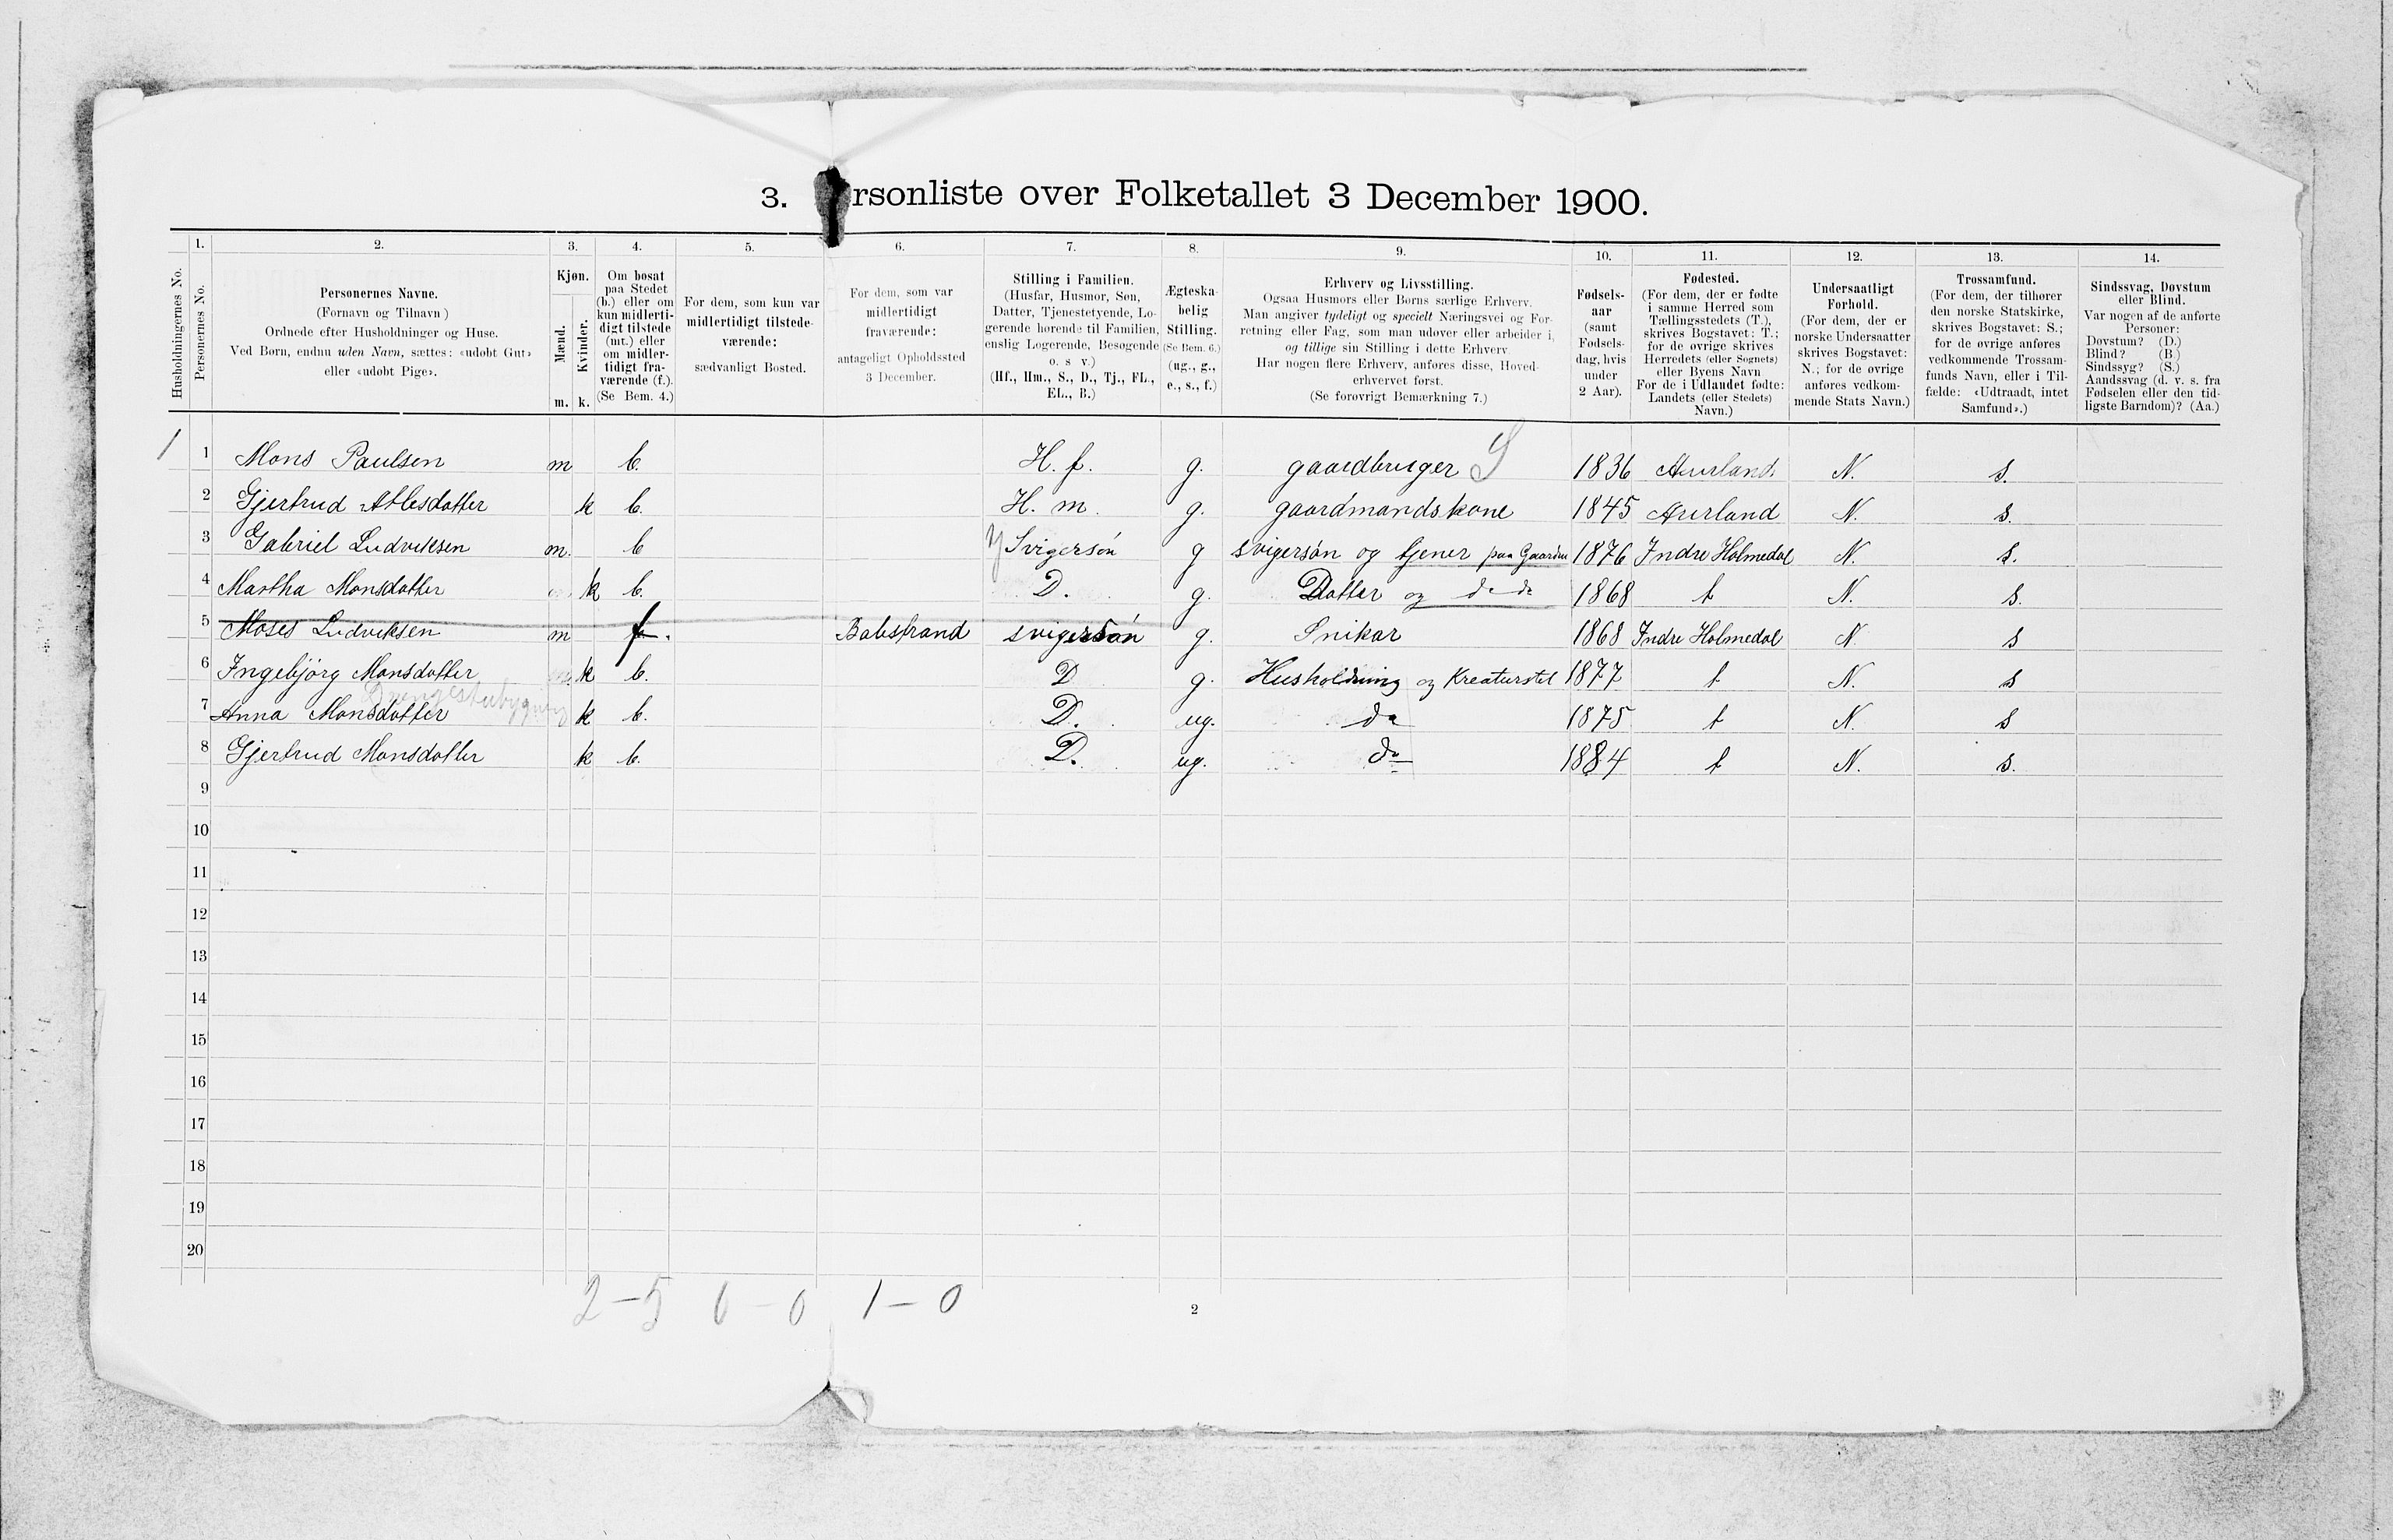 3. rsonliste over Folketallet 3 December 1900.
1. 2. 3. 4. 5. 6. 7. 8. 9. 10. 11. 12. 13. 14.
Husholdningernes No.
Personernes No.
Personernes Navne.
(Fornavn og Tilnavn)
Ordnede efter Husholdninger og Huse.
Ved Børn, endnu uden Navn, sættes: «udøbt Gut»
eller «udøbt Pige».
Kjøn.
Mænd.
Kvinder.
m. k.
Om bosat
paa Stedet
(b.) eller om
kun midlerti-
digt tilstede
(mt.) eller
om midler-
tidigt fra-
værende (f.).
(Se Bem. 4.)
For dem, som kun var
midlertidigt tilstede-
værende:
sædvanligt Bosted.
For dem, som var
midlertidigt
fraværende:
antageligt Opholdssted
3 December.
Stilling i Familien.
(Husfar, Husmor, Søn,
Datter, Tjenestetyende, Lo-
gerende hørende til Familien,
enslig Logerende, Besøgende
o. s v.)
(Hf., Hm., S., D., Tj., FL.,
EL., B.)
Ægteska-
belig
Stilling.
(Se Bem. 6.)
(ug., g.,
e., s., f.)
Erhverv og Livsstilling.
Ogsaa Husmors eller Børns særlige Erhverv.
Man angiver tydeligt og specielt Næringsvei og For-
retning eller Fag, som man udøver eller arbeider i,
og tillige sin Stilling i dette Erhverv.
Har nogen flere Erhverv, anføres disse, Hoved-
erhvervet først.
(Se forøvrigt Bemærkning 7.)
Fødsels-
aar
(samt
Fødsels-
dag, hvis
under
2 Aar).
Fødested.
(For dem, der er fødte
i samme Herred som
Tællingsstedets (T.),
skrives Bogstavet: T.;
for de øvrige skrives
Herredets (eller Sognets)
eller Byens Navn
For de i Udlandet fødte:
Landets (eller Stedets)
Navn.)
Undersaatligt
Forhold.
(For dem, der er
norske Undersaatter
skrives Bogstavet:
N.; for de øvrige
anføres vedkom-
mende Stats Navn.)
Trossamfund.
(For dem, der tilhører
den norske Statskirke,
skrives Bogstavet: S.;
for de øvrige anføres
vedkommende Trossam-
funds Navn, eller i Til-
fælde: «Udtraadt, intet
Samfund».)
Sindssvag, Døvstum
eller Blind.
Var nogen af de anførte
Personer:
Døvstum? (D.)
Blind? (B.)
Sindssyg? (S.)
Aandssvag (d. v. s. fra
Fødselen eller den tid-
ligste Barndom)? (Aa.)
1 1 Mons Paulsen m b. H. f. g. gaardbruger S 1836 Aurland N. s.
2 Gjertrud Atlesdatter k b. H. m. g. gaardmandskone 1845 Aurland N. s.
3 Gabriel Ludviksen m. b Svigersøn g svigersøn og tjener paa Gaarden 1876 Indre Holmedal N. s.
4 Martha Monsdatter k b. D. g. Datter og do do 1868 t N. s.
5 Moses Ludviksen m f. svigersøn g. Snikar 1868 Indre Holmedal N. s
6 Ingebjörg Monsdatter k b. D g. Husholdning og Kreaturstel 1877 t N. s
7 Anna Monsdatter k b. D. ug. do 1875 t N. s
8 Gjertrud Monsdatter k b. D. ug. do 1884 t N. s.
9
10
11
12
13
14
15
16
17
18
19
20
2 – 5 0 – 0 1 – 0
2